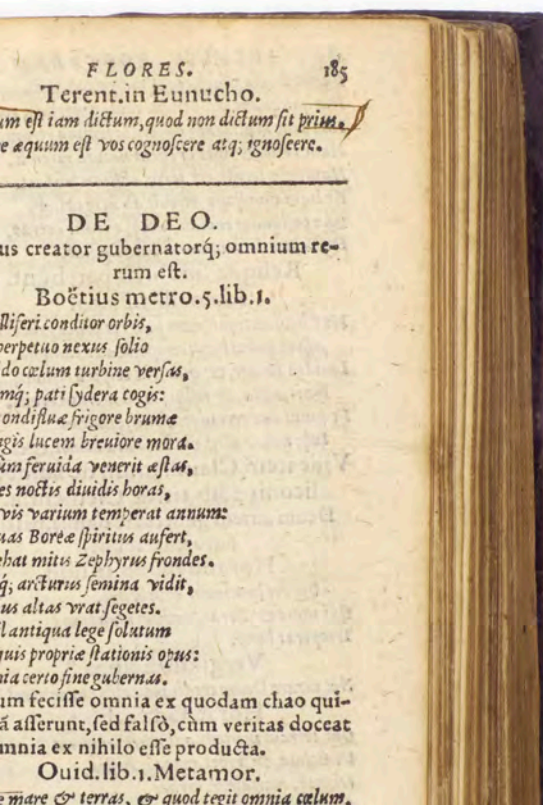 FLORES. 185
Terent.in Eunucho.
um eſt iam dictum,quod non dictum ſit prius.
e æquum eſt vos cognoſcere atq; ignoſcere.
DE DEO.
us creator gubernatorq́; omnium re-
rum eſt.
Boëtius metro.5.lib.1.
lliferi conditor orbis,
perpetuo nexus ſolio
do cœlum turbine verſas,
mq́; pati ſydera cogis:
ondifluæ frigore brumæ
gis lucem breuiore mora.
ùm feruida venerit æſtas,
es noctis diuidis horas,
vis varium temperat annum:
uas Boreæ ſpiritus aufert,
ehat mitis Zephyrus frondes.
q́; arcturus ſemina vidit,
us altas vrat ſegetes.
l antiqua lege ſolutum
quis propriæ ſtationis opus:
nia certo fine gubernas.
um feciſſe omnia ex quodam chao qui-
ã aſſerunt,ſed falſò,cùm veritas doceat
mnia ex nihilo eſſe producta.
Ouid.lib.1.Metamor.
e mare & terras, & quod tegit omnia cœlum,